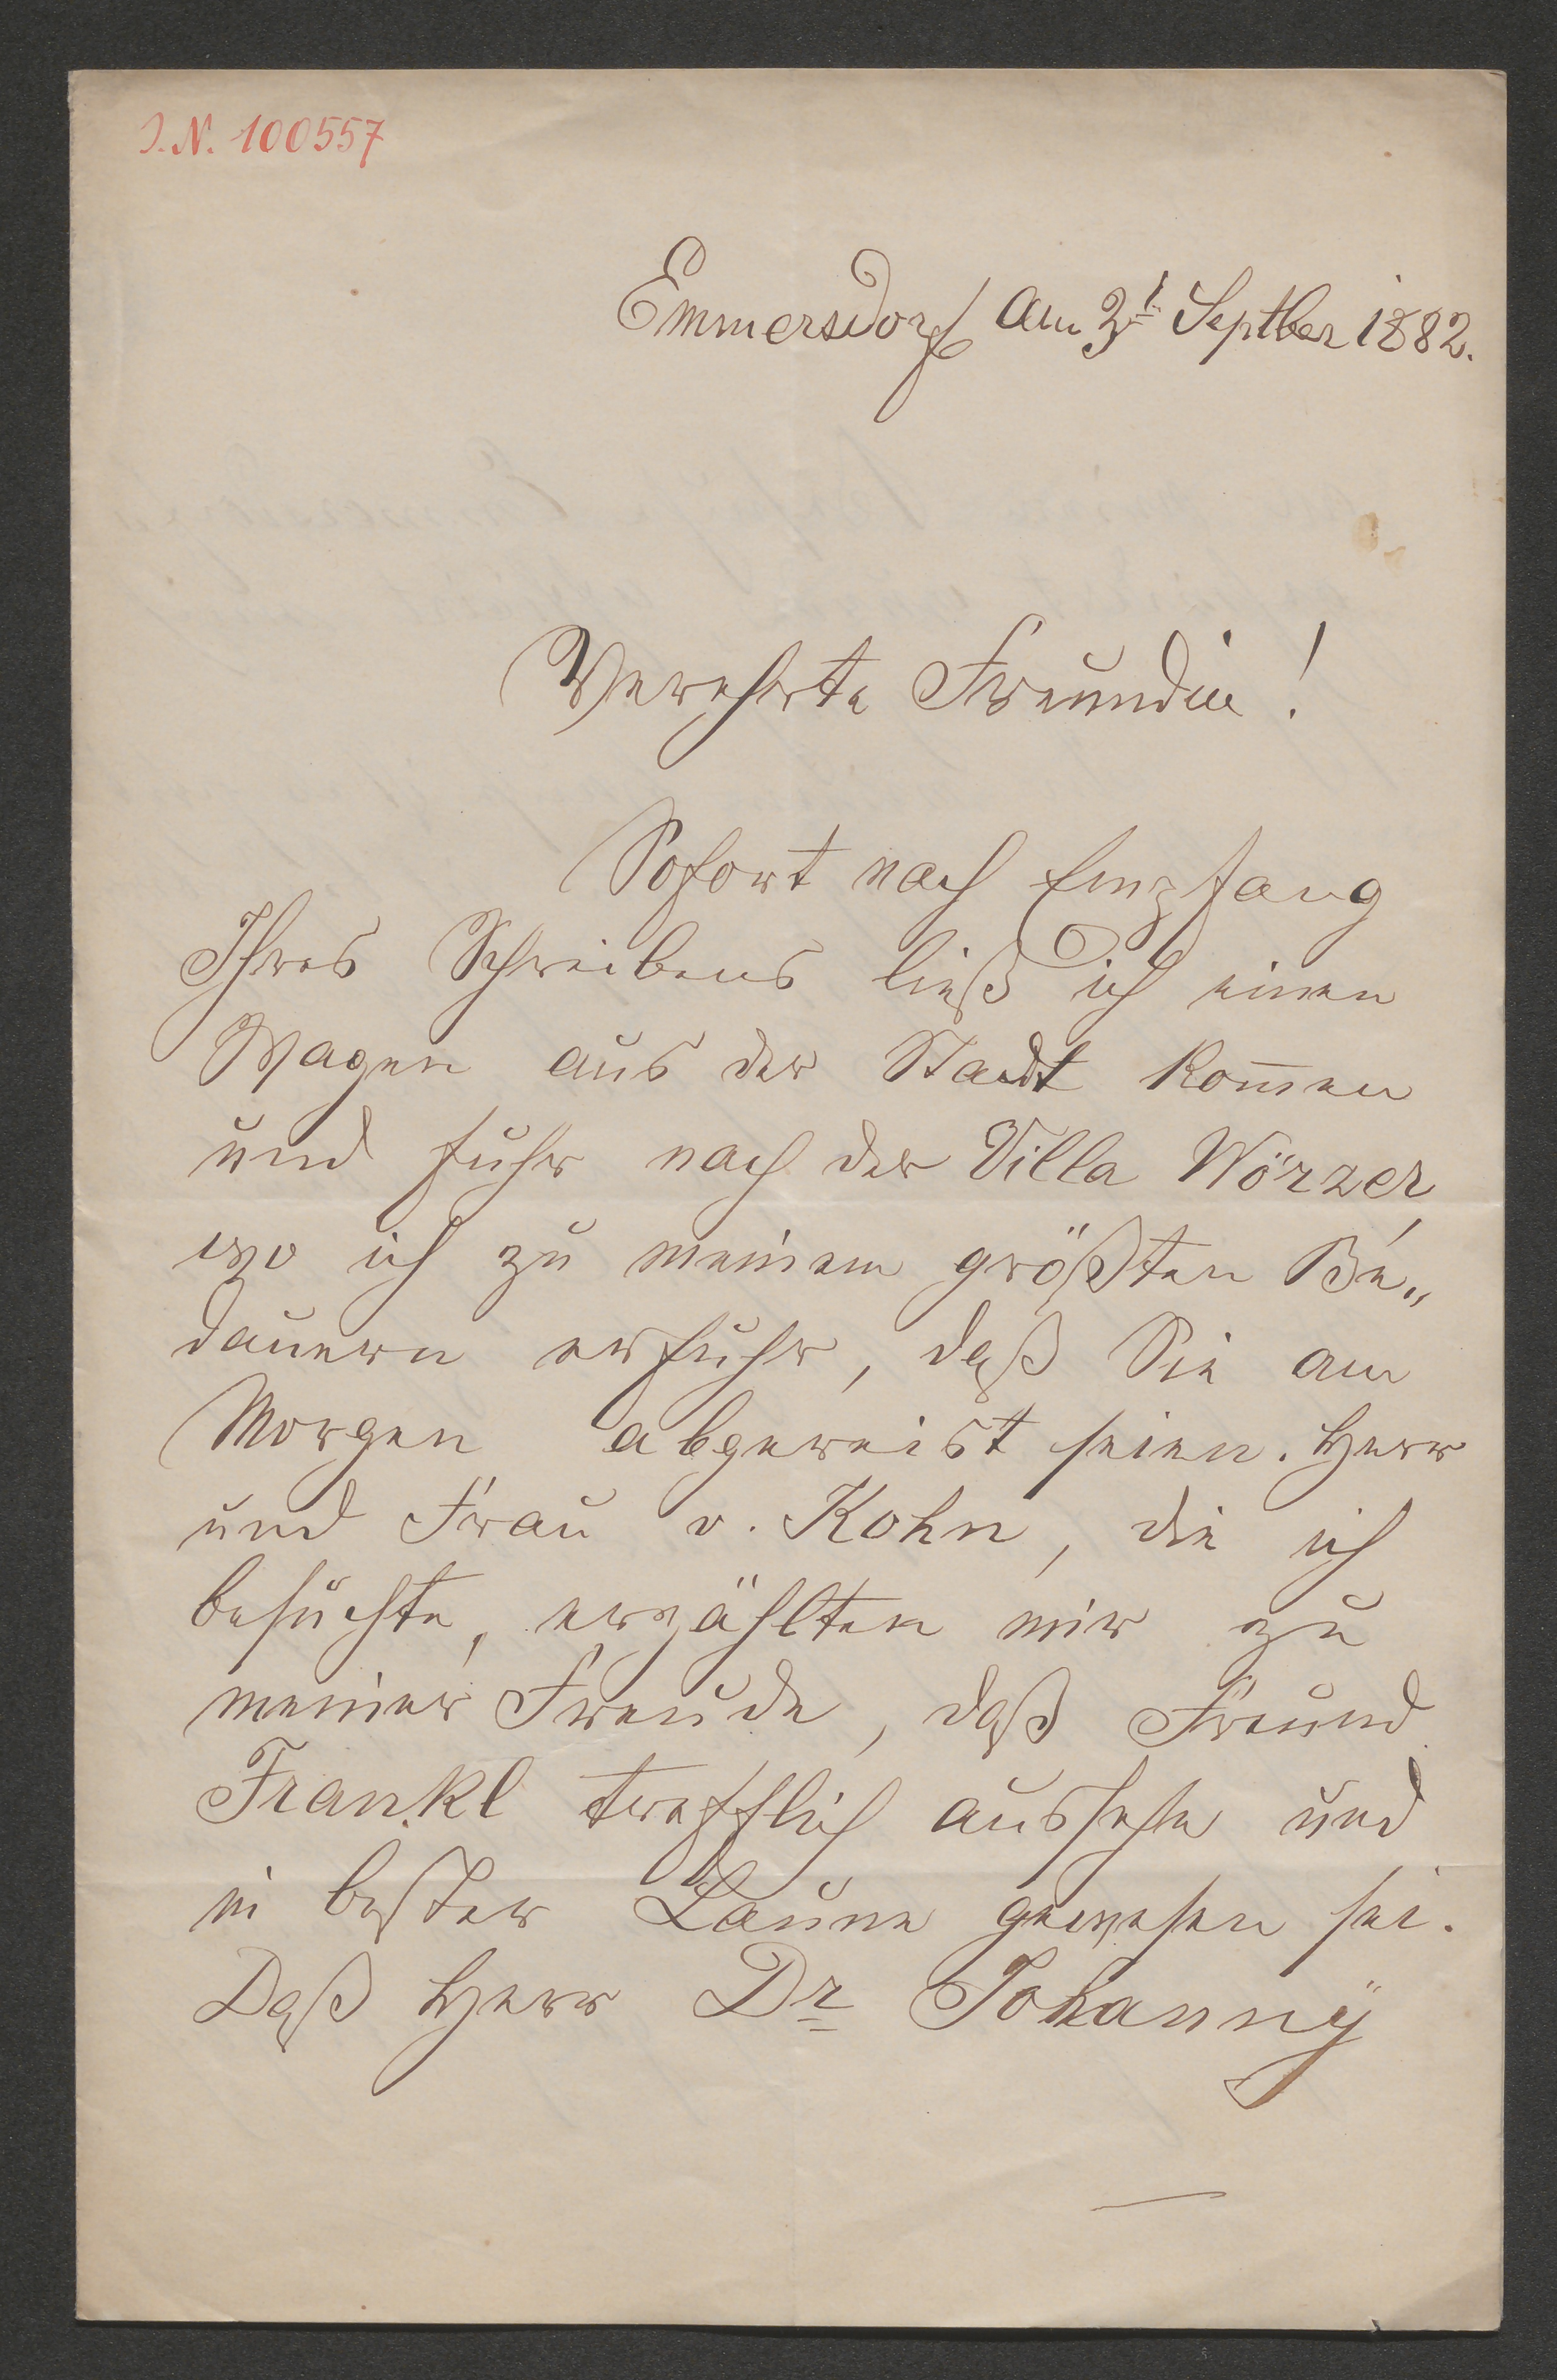 J.N. 100557
Emmersdorf am 3t. Septber 1882.
Verehrte Freundin!
Sofort nach Empfang
Ihres Schreibens ließ ich einen
Wagen aus der Stadt kom̅en
und fuhr nach der Villa Wörzer,
wo ich zu meinem größten Be„
dauern erfuhr, daß Sie am
Morgen abgereist seien. Herr
und Frau v. Kohn, die ich
besuchte, erzählten mir zu
meiner Freude, daß Freund
Frankl trefflich aussehe und
in bester Laune gewesen sei.
Daß Herr Dr Johanny